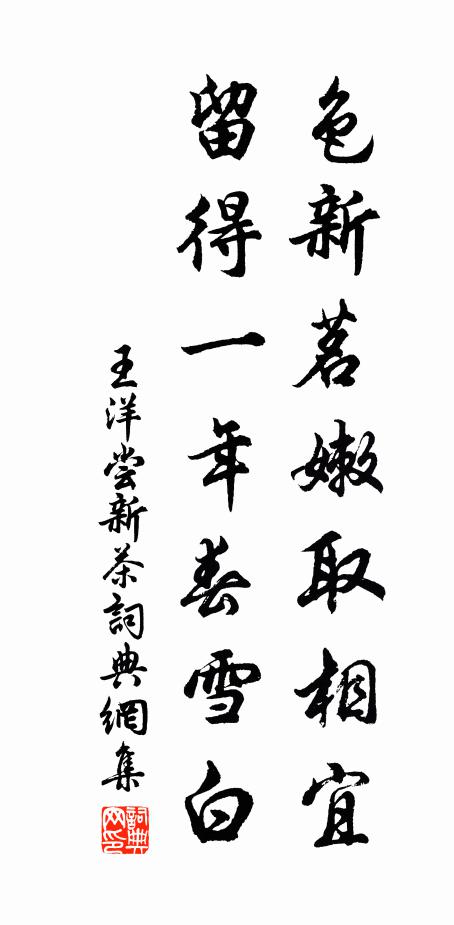 色新茗嫩取相宜
留得一年春雪白
王洋嘗新茶詞典網集
詞典
网印